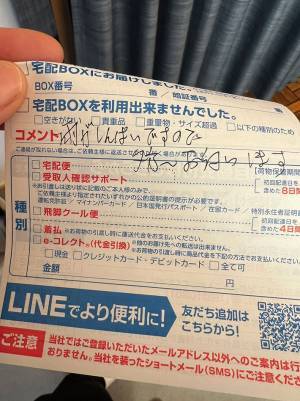 宅配BOXにお届けしました。
BOX番号 番 暗証番号
宅配BOXを利用出来ませんでした。
□空きがない □貴重品 □重量物・サイズ超過 □以下の種別のため
コメント
ですので
ご連絡が取れない場合は、ご依頼主様に返送させて
種別
□宅配便 【荷物保管期間
□受取人確認サポート 初回配達日を
※お引渡しは送り状に記載のご本人様のみです。 含めた8日間
ご依頼主様より指定されたいずれかの公的証明書の提示が必要です。
運転免許証 / マイナンバーカード / 日本国発行パスポート / 在留カード / 特別永住者証明書
□飛脚クール便 初回配達日を
□着払 ※お荷物の引渡し時に運送代金をお支払いください。 含めた4日間
□e-コレクト®(代金引換) ※物のお届け先への転送は出来ません。
※お荷物の引渡し時に商品代金を下記の方法でお支払いください。
□現金 □クレジットカード・デビットカード □全て可
金額 円
LINEでより便利に!
友だち追加は
こちらから!
ご注意
当社ではご登録いただいたメールアドレス以外へのご案内は行
おりません。当社を装ったショートメール(SMS)にご注意くださ